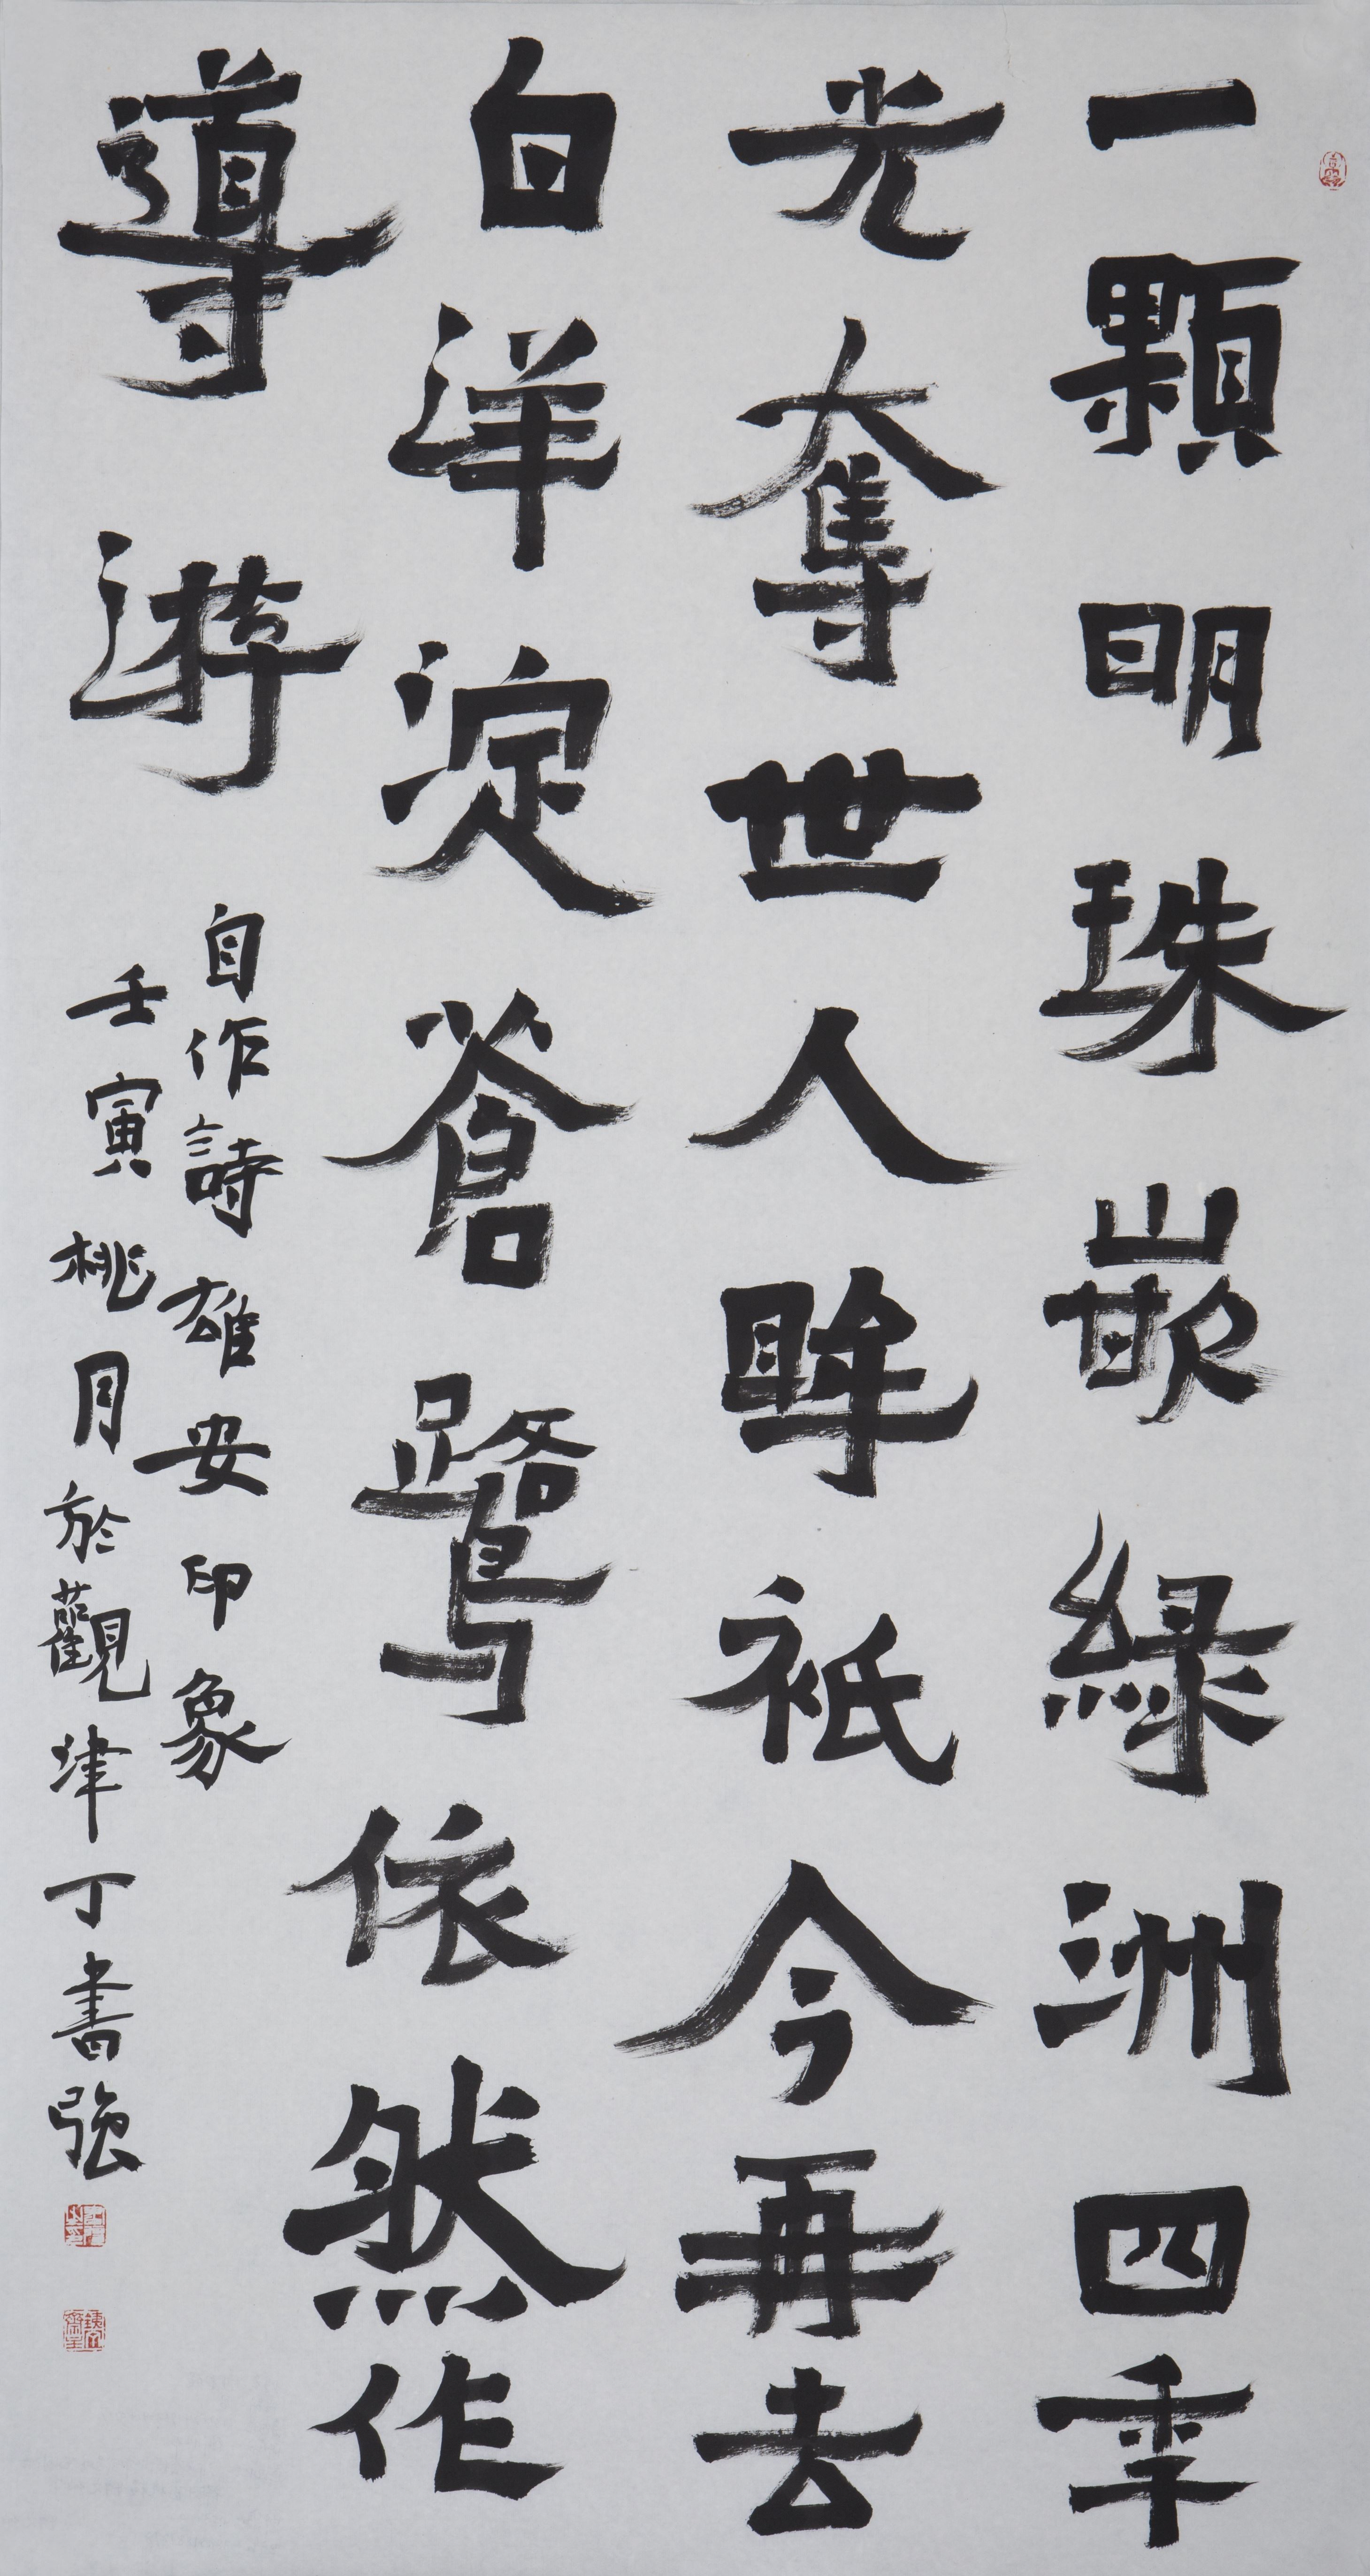 一顆明珠嵌綠洲四季
光奪世人眸祇今再去
白洋淀蒼鷺依然作
導游
自作詩雄安印象
壬寅桃月於觀津丁書強